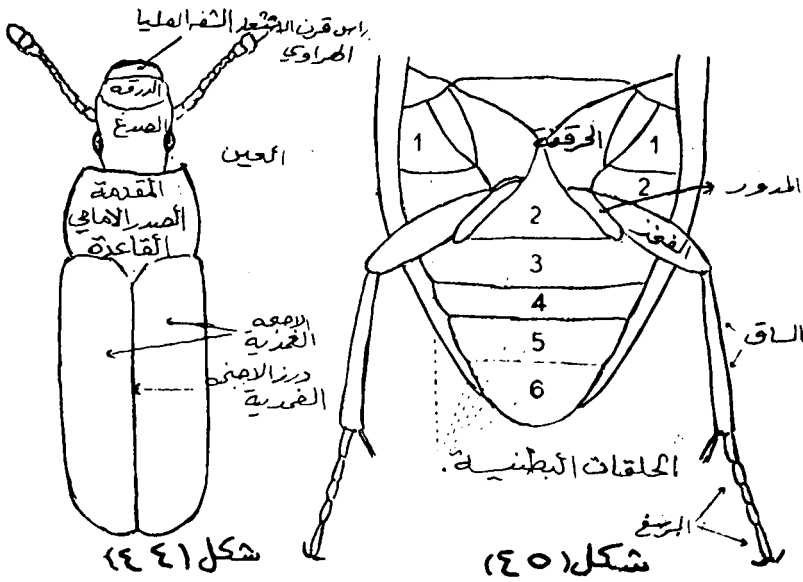 راس قرن الاستشعار
الهراوي
الشفه العليا
الدرقه
الصدغ
العين
المقدمة
الصدر الامامي
القاعدة
الاجنحه
الغمدية
درز الاجنحه
الغمدية
شكل (٤٤)
الحرقفة
1
1
2
2
المدور
الفخذ
3
4
5
6
الساق
الحلقات البطنية.
الرسغ
شكل (٤٥)